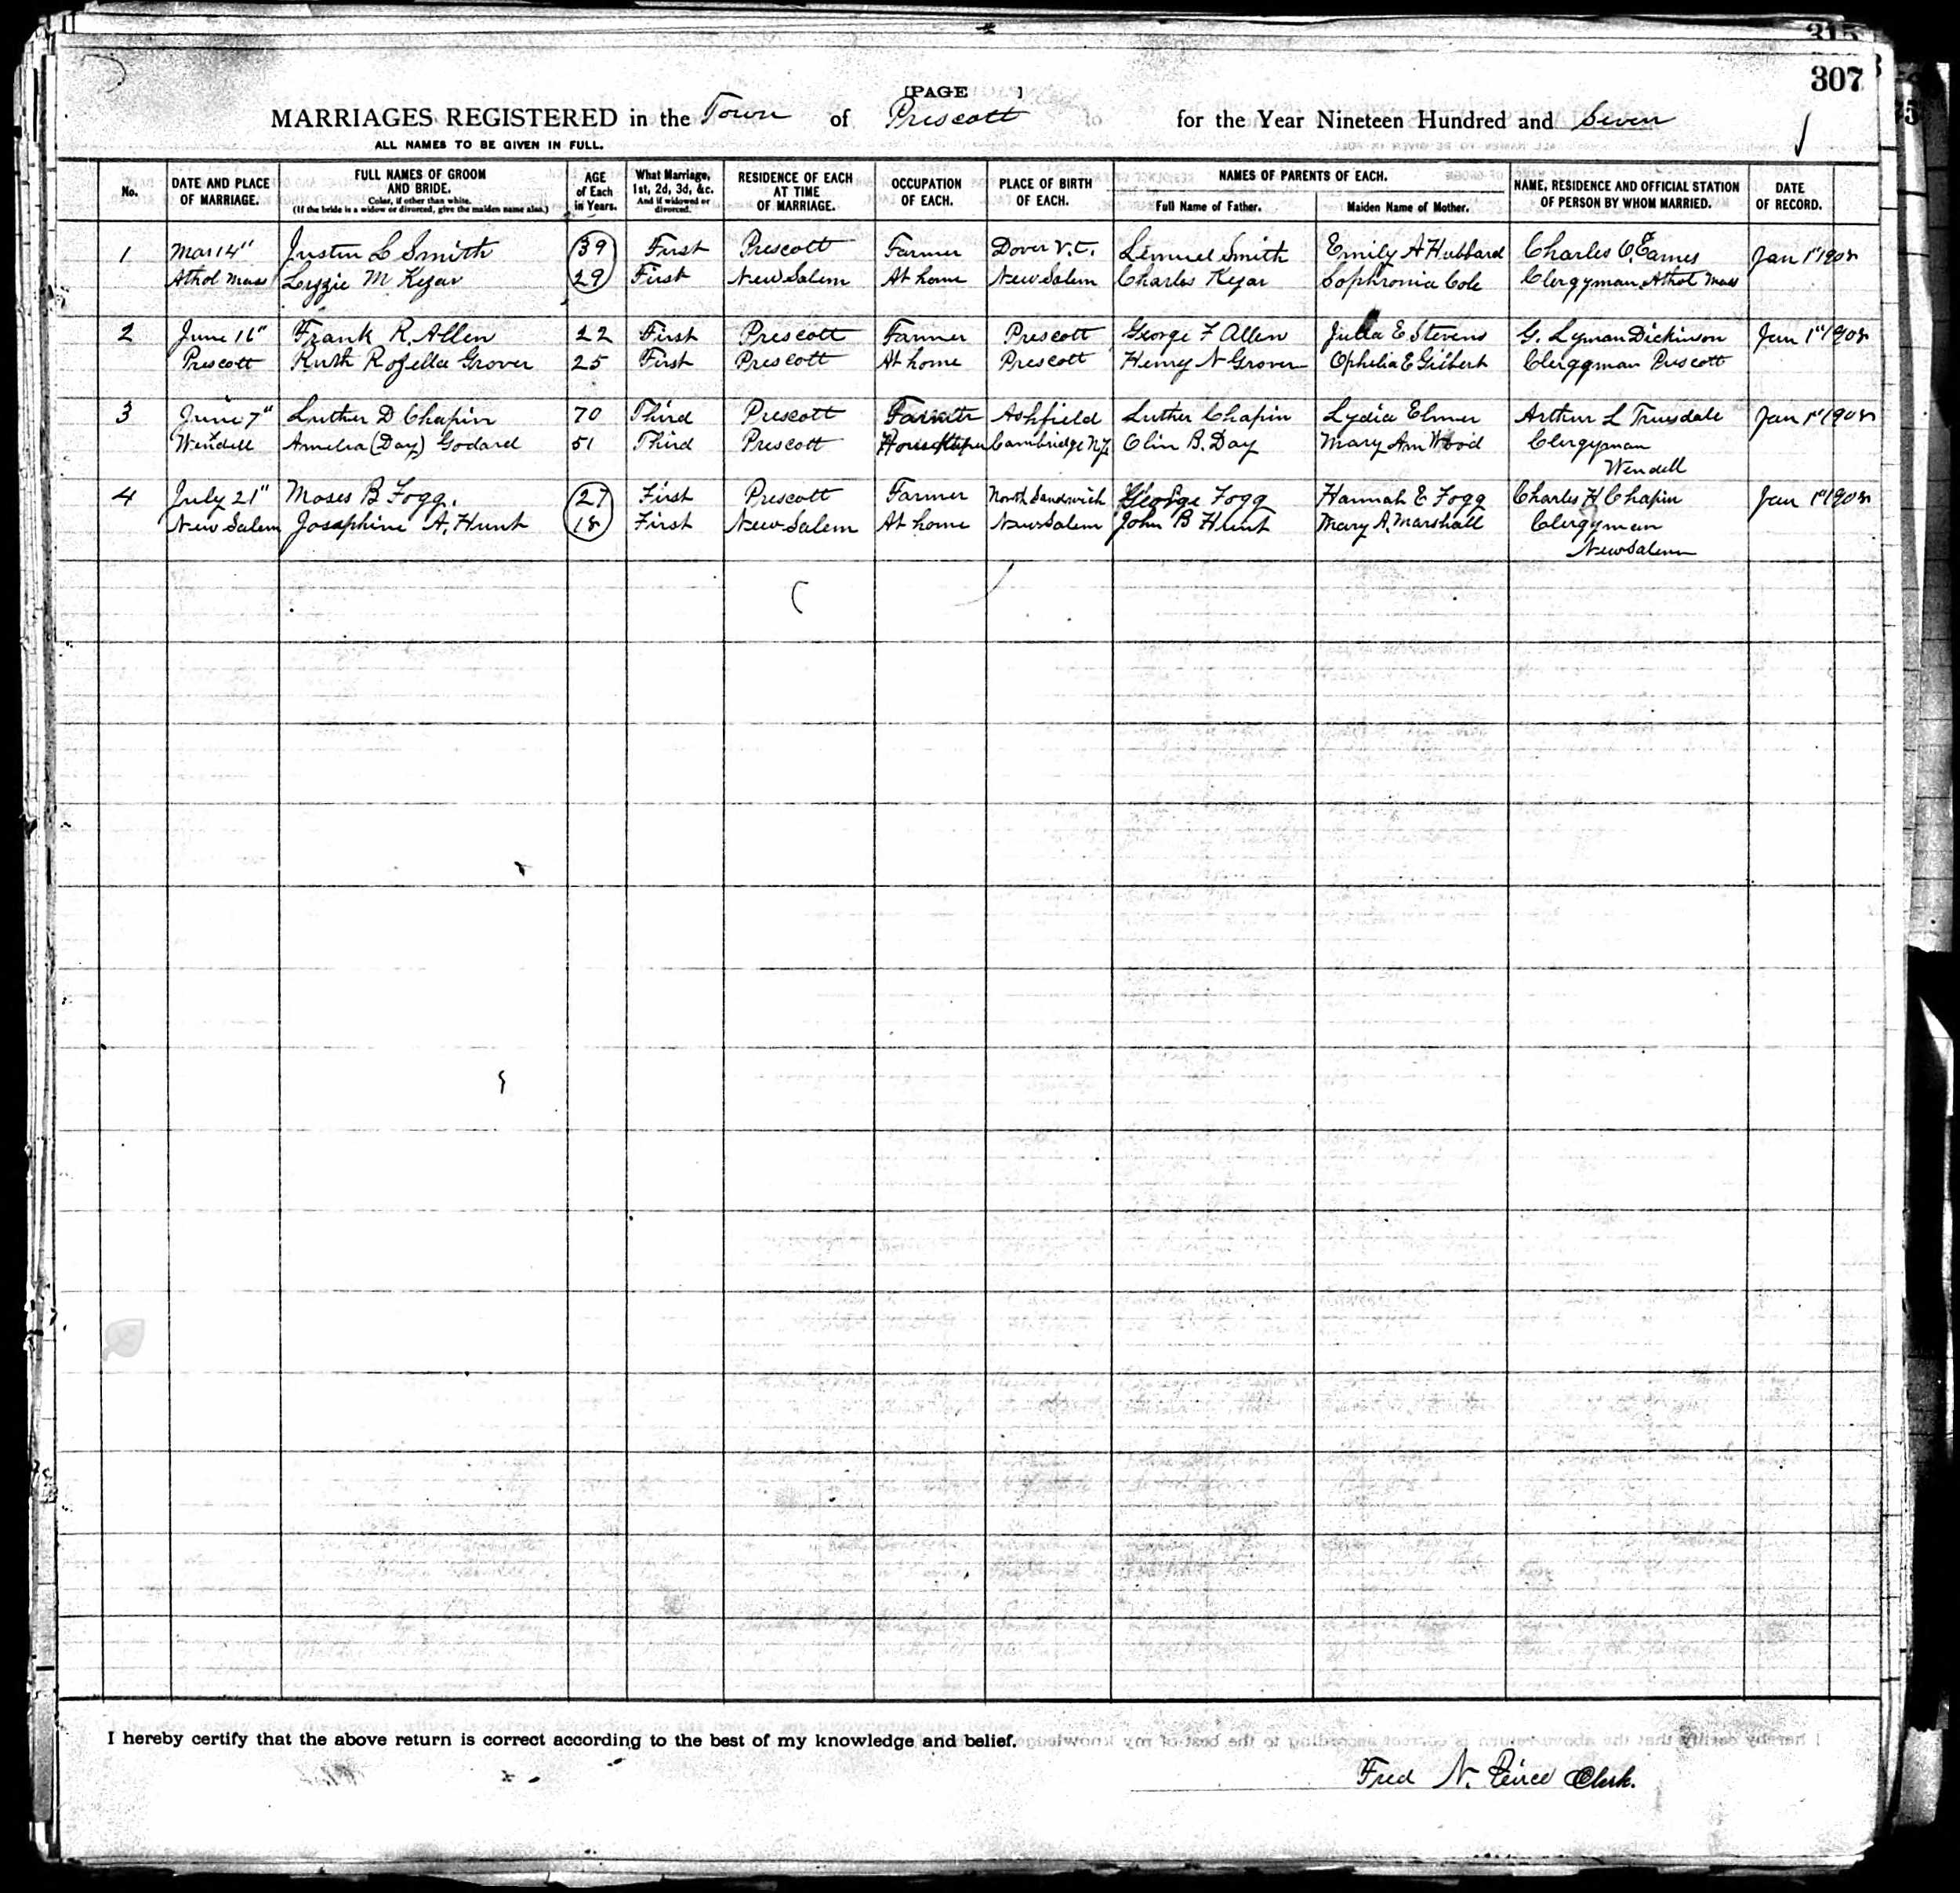 315
307
[PAGE ]
MARRIAGES REGISTERED in the Town of Prescott for the Year Nineteen Hundred and Seven
ALL NAMES TO BE GIVEN IN FULL.
No. DATE AND PLACE OF MARRIAGE. FULL NAMES OF GROOM AND BRIDE. Color, if other than white. (If the bride is a widow or divorced, give the maiden name also.) AGE of Each in Years. What Marriage, 1st, 2d, 3d, &c. And if widowed or divorced. RESIDENCE OF EACH AT TIME OF MARRIAGE. OCCUPATION OF EACH. PLACE OF BIRTH OF EACH. NAMES OF PARENTS OF EACH. Full Name of Father. Maiden Name of Mother. NAME, RESIDENCE AND OFFICIAL STATION OF PERSON BY WHOM MARRIED. DATE OF RECORD.
1 Mar 14" Justin L Smith 39 First Prescott Farmer Dover V.T. Lemuel Smith Emily A Hubbard Charles O. Eames Jan 1st 1908
Athol Mass Lizzie M Kezar 29 First New Salem At home New Salem Charles Kezar Sophronia Cole Clergyman Athol Mass
2 June 16" Frank R. Allen 22 First Prescott Farmer Prescott George F Allen Julia E Stevens G. Lyman Dickinson Jan 1st 1908
Prescott Ruth Rozella Grover 25 First Prescott At home Prescott Henry N Grover Ophelia E Gilbert Clergyman Prescott
3 June 7" Luther D Chapin 70 Third Prescott Farmer Ashfield Luther Chapin Lydia Elmer Arthur L Truesdale Jan 1st 1908
Wendell Amelia (Day) Godard 51 Third Prescott Housekeeper Cambridge N.Y. Olin B. Day Mary Ann Wood Clergyman
Wendell
4 July 21" Moses B Fogg. 27 First Prescott Farmer North Sandwich George Fogg Hannah E Fogg Charles H Chapin Jan 1st 1908
New Salem Josephine A. Hunt 18 First New Salem At home New Salem John B Hunt Mary A. Marshall Clergyman
New Salem
I hereby certify that the above return is correct according to the best of my knowledge and belief.
Fred N. Peirce Clerk.